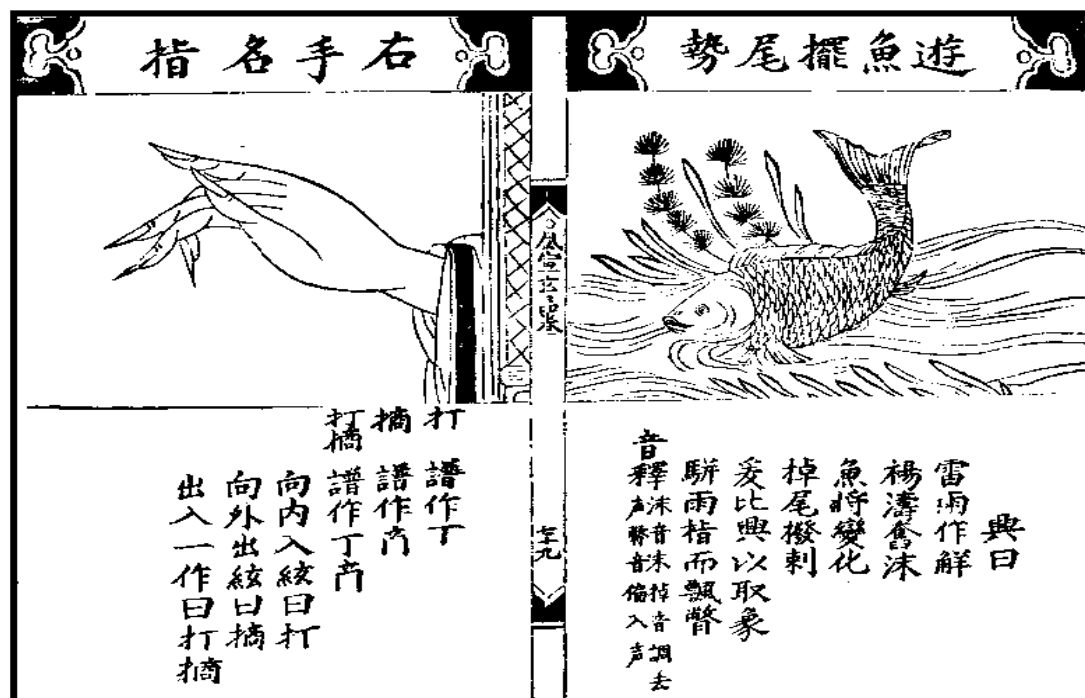 遊魚擺尾勢
興曰
雷雨作解
揚濤奮沫
魚將變化
掉尾撥剌
爰比興以取象
駢兩指而飄瞥
音釋 沫音末掉音調去
声駢音偏入声
風宣玄品卷
右手名指
打 譜作丁
摘 譜作
打摘 譜作丁
向内入絃曰打
向外出絃曰摘
出入一作曰打摘